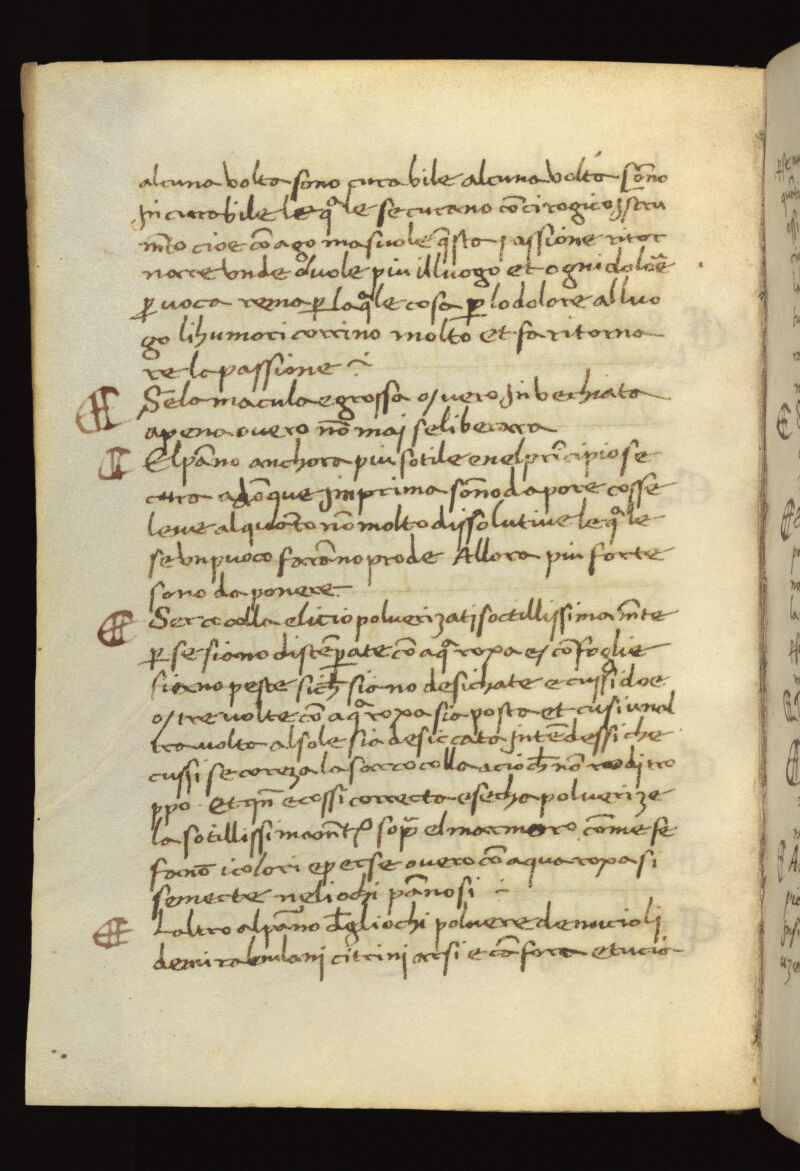 alcuna volta sono curabile alcuna volta sõno
Incurabile le q̃le se curano cõ cirogico Istru
mẽto cioe cõ ago ma suole q̃sta passione ritor
nare unde duole piu il luogo et ogni dolore
ꝑ voca rema ꝑ la q̃le cosa ꝑ lo dolore al luo
go li humori corrino molto et fa ritorna
re la passione
Se la macula e grossa o/ vero Invechiata
apena overo nõ maj se liberarra
El pãno anchora piu sotile e nel prĩcipio se
cura adõque Imprima sõno da pore cosse
leve alquãto nõ molto dissolutive le q̃le
se un puoco farãno prode Allora piu forte
sono da ponere
Sarcocolla elicio polverizati soctillissimamẽte
ꝑ se siano distẽperate cõ aq̃ roxa e/ cõ foglie
siano peste sich̃ siano desichate e cussi doe
o/ tre volte cõ aq̃ roxa sia posta et cusi unal
tra volta al sole sia desiccata Intẽdessi che
cussi se coreza la sarcocolla acioch̃ nõ roditro
ppo. Et qñ e cossi correcta e secha polverize
la sotillissimamẽt sop̃ el marmoro cõme se
fano i colori e per se overo cõ aqua roxa si
semecte neli ochi pãnosi
Laltro al pãno degliochi polvere de nucioli
de mirabulani citrini arsi e cãfora e tucia